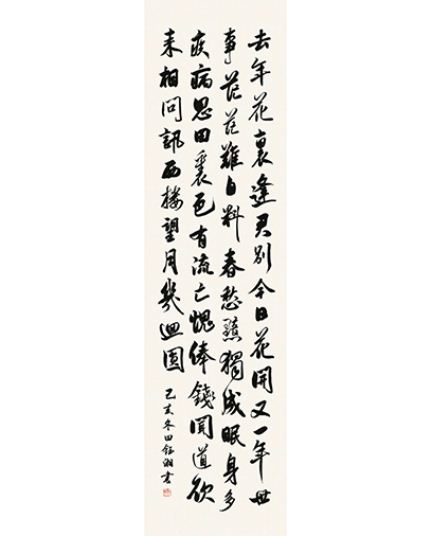 去年花裏逢君别今日花開又一年世
事茫茫難自料春愁黯獨成眠身多
疾病思田裏邑有流亡愧俸錢聞道欲
来相問訊西樓望月幾迴圓
己亥冬田書